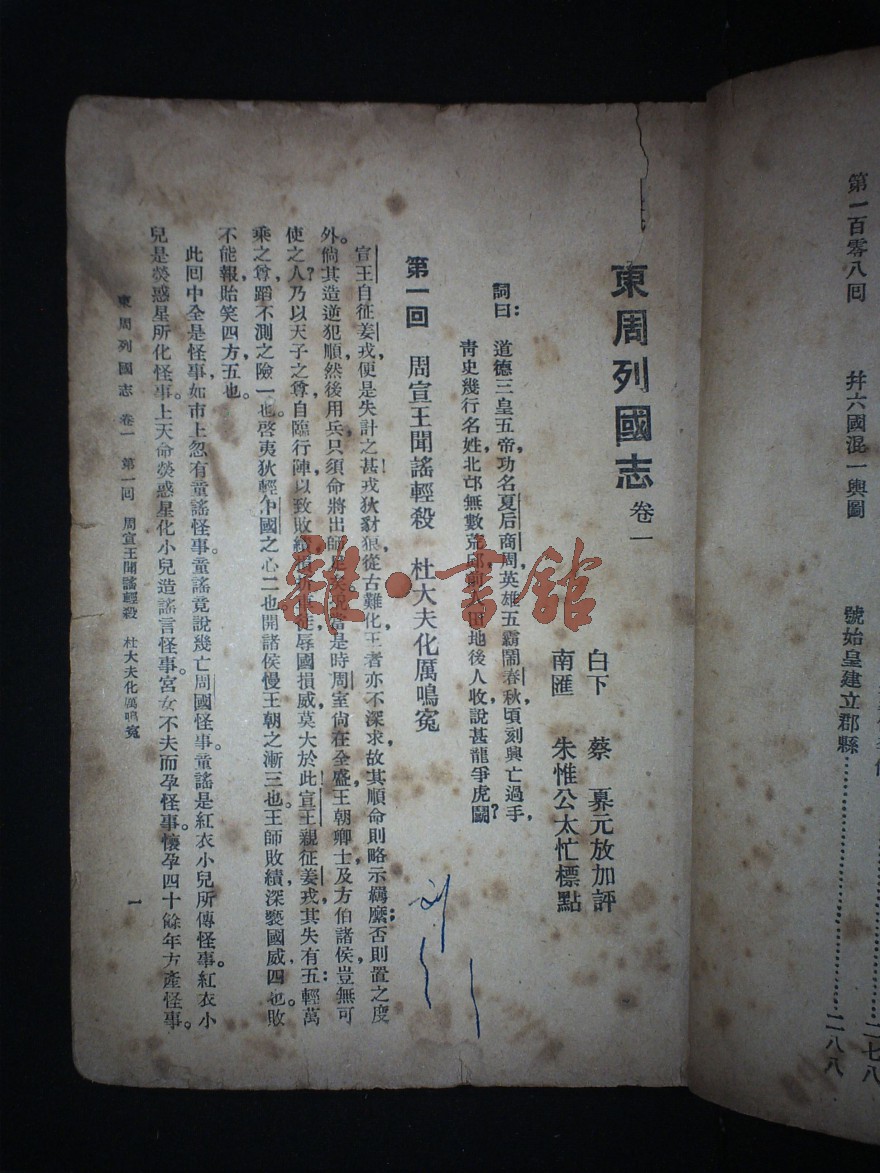 二七八
第一百零八囘　幷六國混一輿圖　號始皇建立郡縣……二八八
東周列國志 卷一
白下　蔡　元放加評
南匯　朱惟公太忙標點
詞曰：道德三皇五帝，功名夏后商周，英雄五霸鬧春秋，頃刻興亡過手，
靑史幾行名姓，北邙無數荒邱，前人田地後人收，說甚龍爭虎鬭？
第一囘　周宣王聞謠輕殺　杜大夫化厲鳴寃
宣王自征姜戎，便是失計之甚！戎狄豺狼，從古難化，王者亦不深求，故其順命則略示羈縻；否則置之度
外。倘其造逆犯順，然後用兵，只須命將出師足矣。況當是時，周室尙在全盛，王朝卿士及方伯諸侯，豈無可
使之人？乃以天子之尊，自臨行陣，以致敗績，損折，辱國損威，莫大於此！宣王親征姜戎，其失有五：輕萬
乘之尊，蹈不測之險，一也。啓夷狄輕中國之心，二也。開諸侯慢王朝之漸，三也。王師敗績，深褻國威，四也。敗
不能報，貽笑四方，五也。
此囘中全是怪事：如市上忽有童謠，怪事。童謠竟說幾亡周國，怪事。童謠是紅衣小兒所傳，怪事。紅衣小
兒是熒惑星所化，怪事。上天命熒惑星化小兒造謠言，怪事。宮女不夫而孕，怪事。懷孕四十餘年方產，怪事。
東周列國志　卷一　第一囘　周宣王聞謠輕殺　杜大夫化厲鳴寃
一
雜·書館